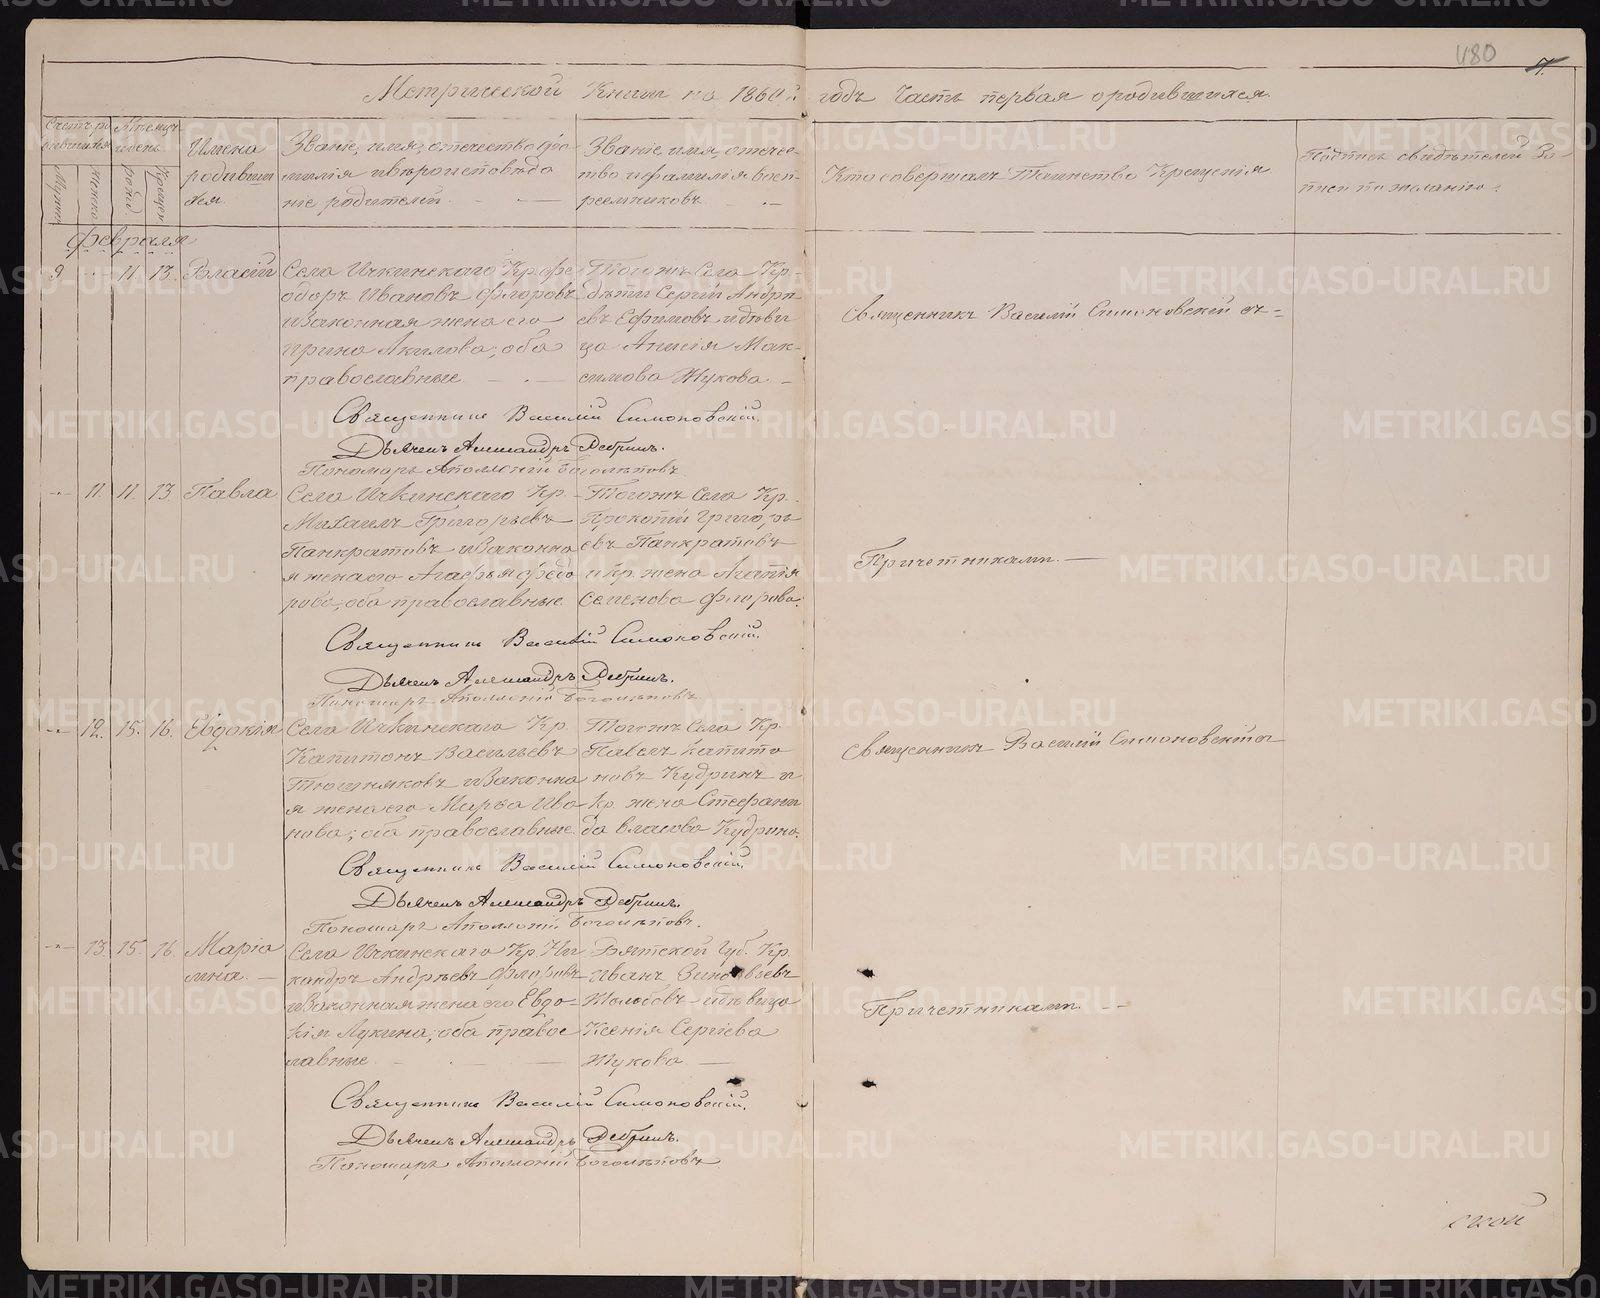 480
7.
Метрической Книги на 1860й годъ Часть первая о родившихся.
Счетъ ро
дившихся
Мѣсяцъ
и день
Имена
родивши
хся.
Званіе, имя, отечество, фа
милія и вѣроисповѣда
ніе родителей.
Званіе, имя, отече-
ство и фамилія восп-
реемниковъ
Кто совершалъ Таинство Крещенія
Подпись свидѣтелей За
писи по желанію
Мужес
Женска
рожд
Крещен
Февраля
9 11. 13. Власій
Села Ичкинскаго Кр. Фе
одоръ Ивановъ Флоровъ
и законная жена его
Ирина Акилова; оба
православные
Тогожъ Села Кр.
дѣти Сергій Андре
евъ Ефимовъ и дѣви
ца Анисія Мак-
симова Жукова.
Священникъ Василій Симоновскій съ
Священникъ Василій Симоновскій.
Дьячекъ Александръ Ребринъ.
Пономарь Аполлоній Боголѣповъ
11. 11. 13 Павла
Села Ичкинскаго Кр.
Михаилъ Григорьевъ
Панкратовъ и законна
я жена его Агафья Федо
рова; оба православные
Тогожъ Села Кр.
Прокопій Григорь
евъ Панкратовъ
и Кр. жена Агапія
Семенова Флорова.
Причетниками.
Священникъ Василій Симоновскій.
Дьячекъ Александръ Ребринъ.
Пономарь Аполлоній Боголѣповъ
12. 15. 16. Евдокія
Села Ичкинскаго Кр.
Капитонъ Васильевъ
Тюшняковъ и законна
я жена его Марѳа Ива
нова; оба православные
Тогожъ Села Кр.
Павелъ Капито
новъ Кудринъ и
Кр. жена Стефани
да Власова Кудрина.
Священникъ Василій Симоновскій съ
Священникъ Василій Симоновскій.
Дьячекъ Александръ Ребринъ.
Пономарь Аполлоній Боголѣповъ.
13. 15. 16 Маріа
мна.
Села Ичкинскаго Кр. Ни
кандръ Андреевъ Флоровъ
и законная жена его Евдо-
кія Лукина; оба правос
лавные
Вятской Губ. Кр.
Иванъ Зиновьевъ
Жолобовъ и дѣвица
Ксенія Сергіева
Жукова
Причетниками.
Священникъ Василій Симоновскій.
Дьячекъ Александръ Ребринъ.
Пономарь Аполлоній Боголѣповъ
ской
METRIKI.GASO-URAL.RU